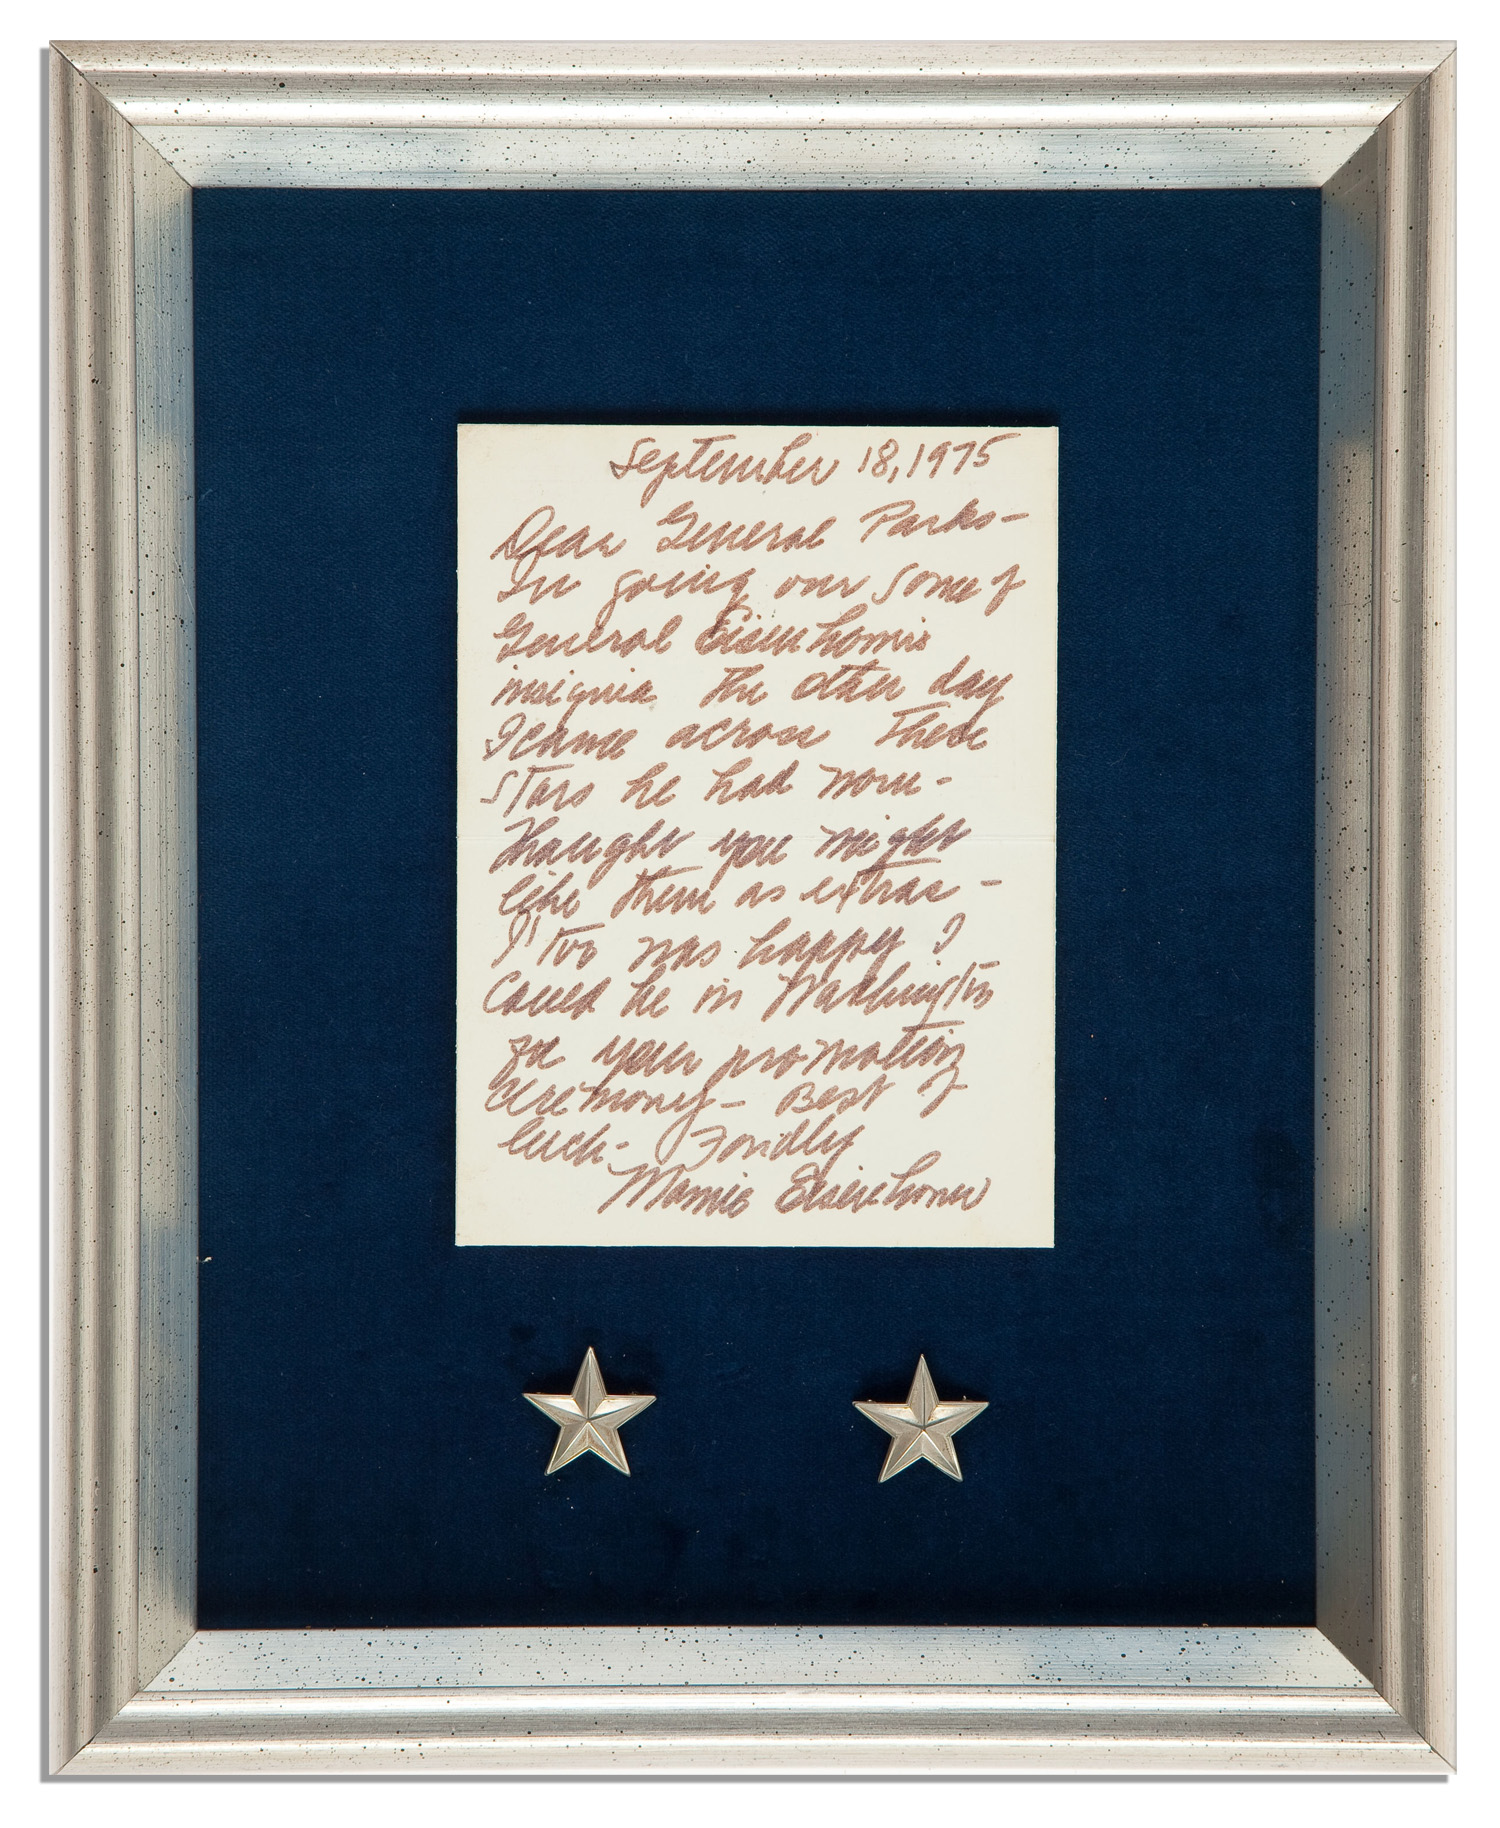 September 18, 1975
Dear General Parks-
In going over some of
General Eisenhower's
insignia the other day
I came across these
stars he had worn-
thought you might
like them as extras-
I too was happy I
could be in Washington
for your promotion
ceremony- Best of
luck- Fondly
Mamie Eisenhower